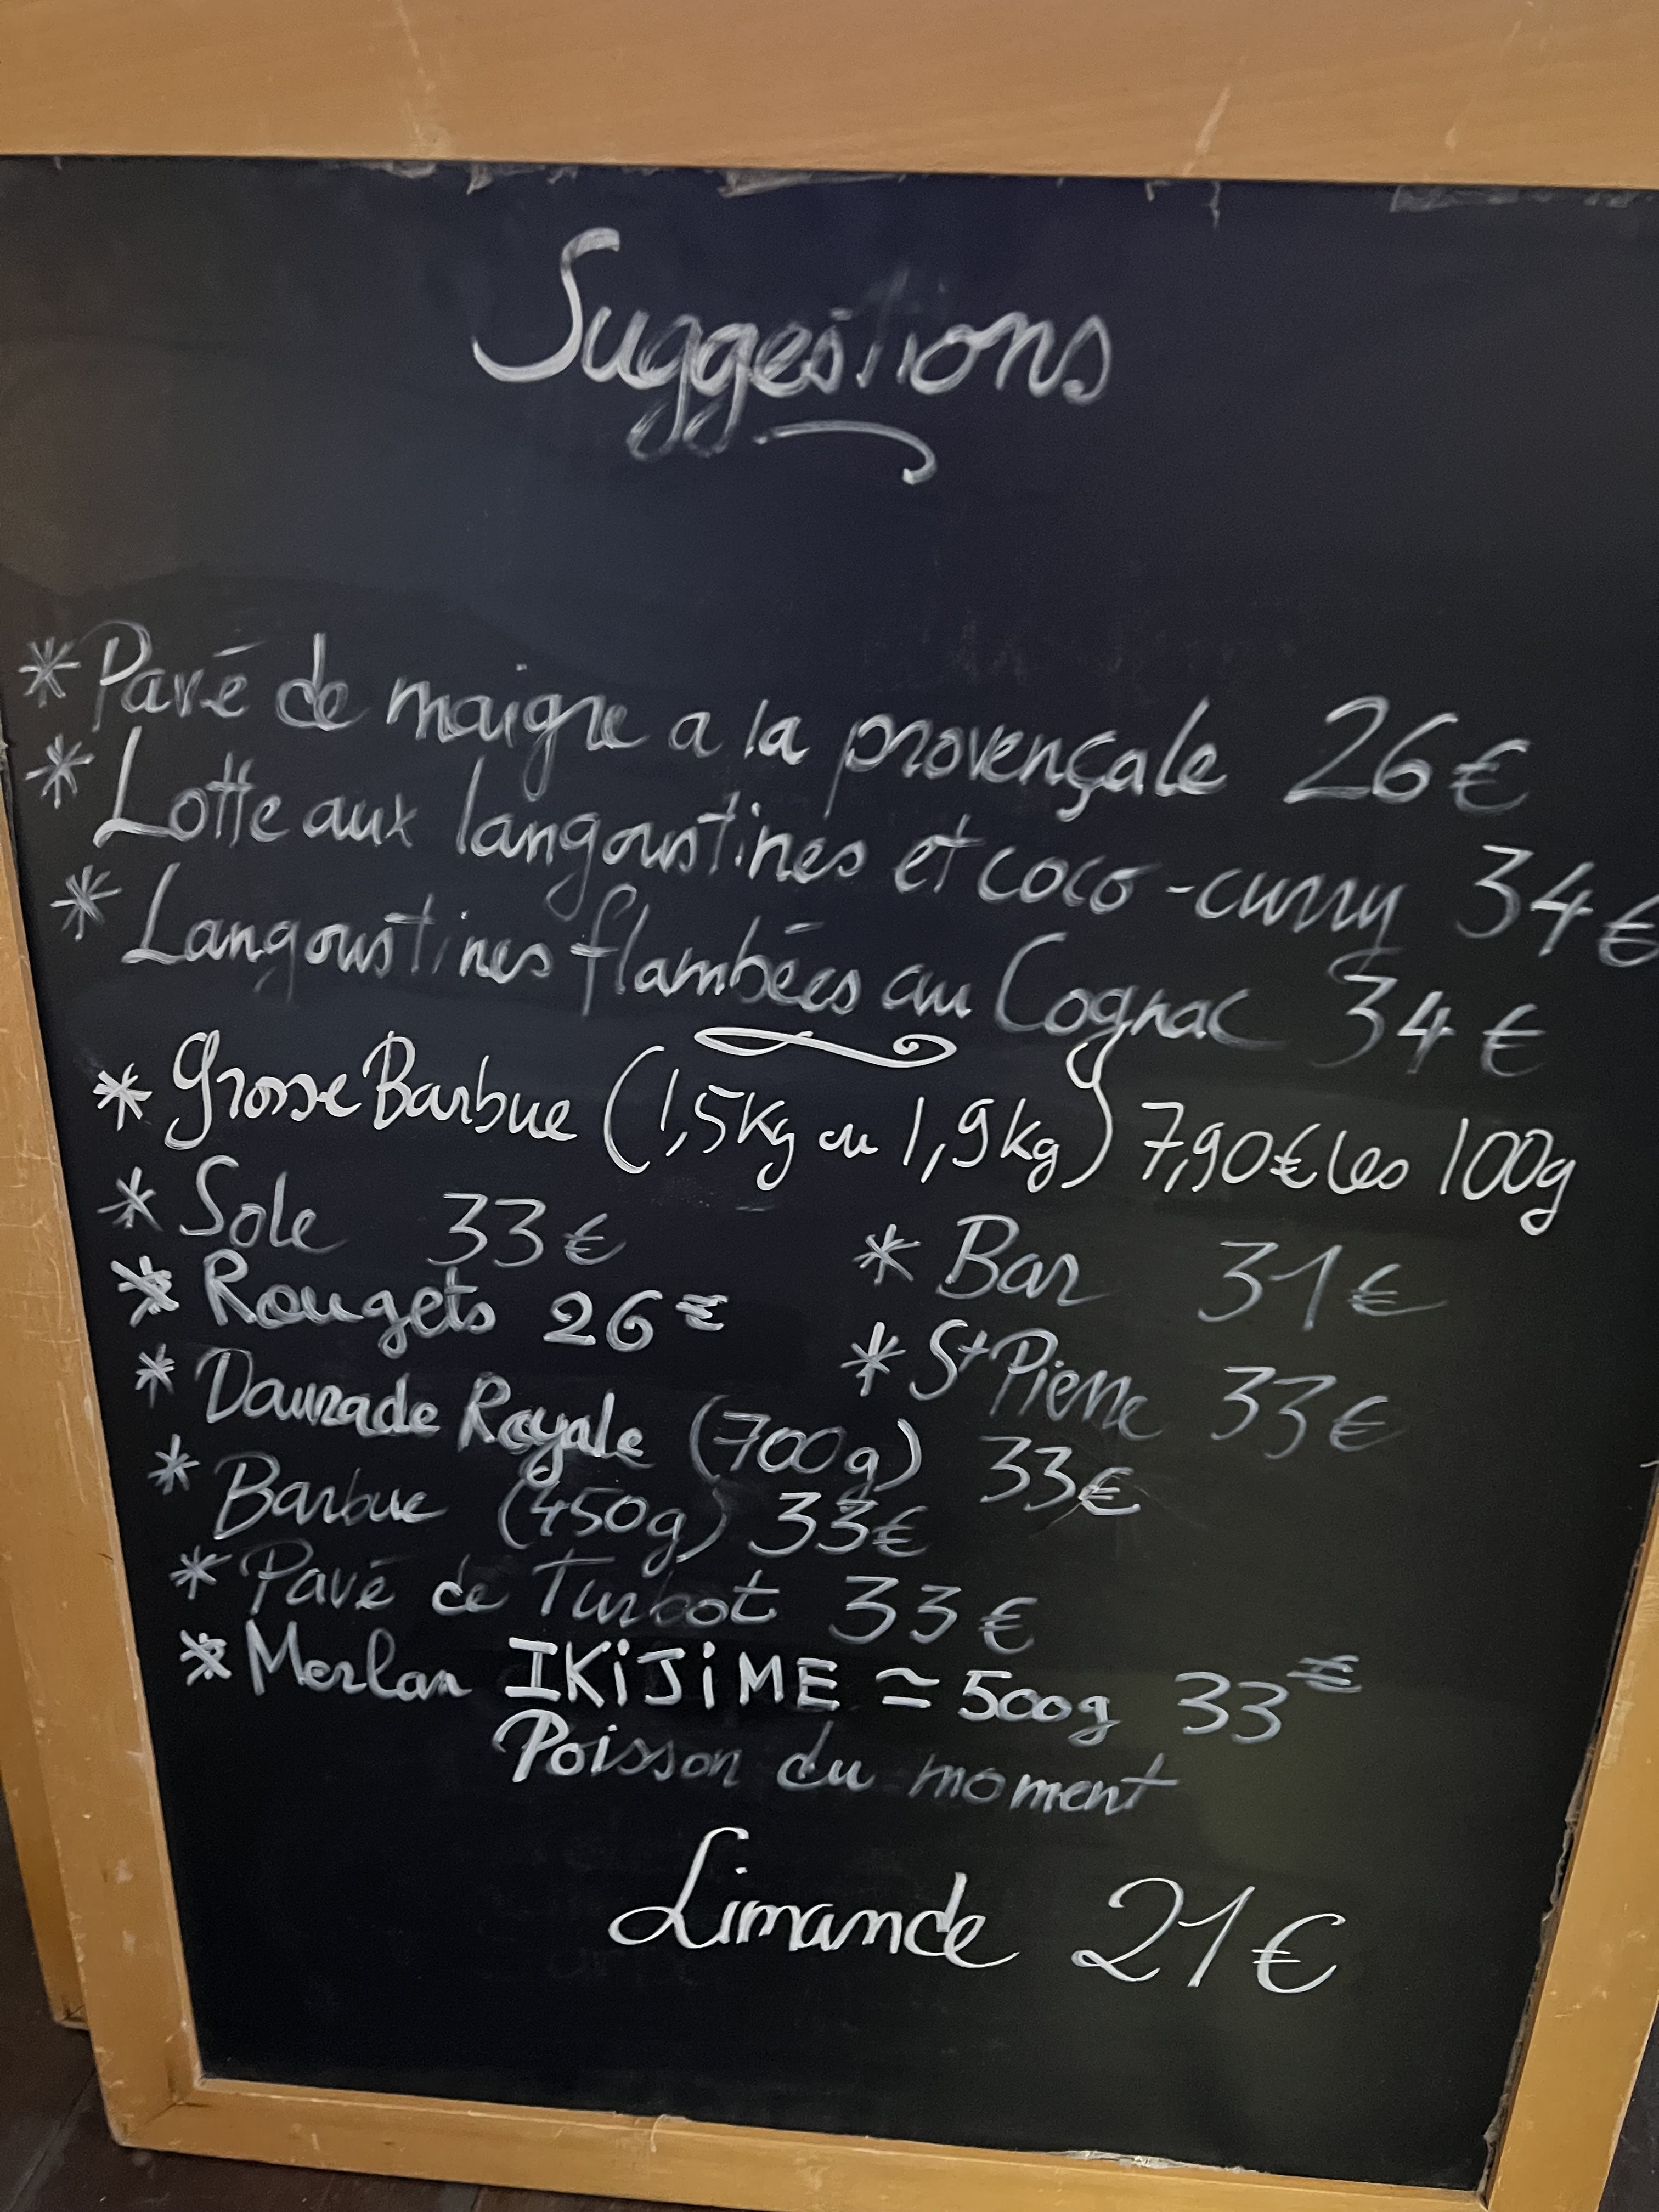 Suggestions
* Pavé de maigre a la provençale 26€
* Lotte aux langoustines et coco-curry 34€
* Langoustines flambées au Cognac 34€
* Grosse Barbue (1,5Kg ou 1,9kg) 7,90€ les 100g
* Sole 33€
* Bar 31€
* Rougets 26€
* St Pierre 33€
* Daurade Royale (700g) 33€
* Barbue (450g) 33€
* Pavé de Turbot 33€
* Merlan IKiJiME ≃ 500g 33€
Poisson du moment
Limande 21€